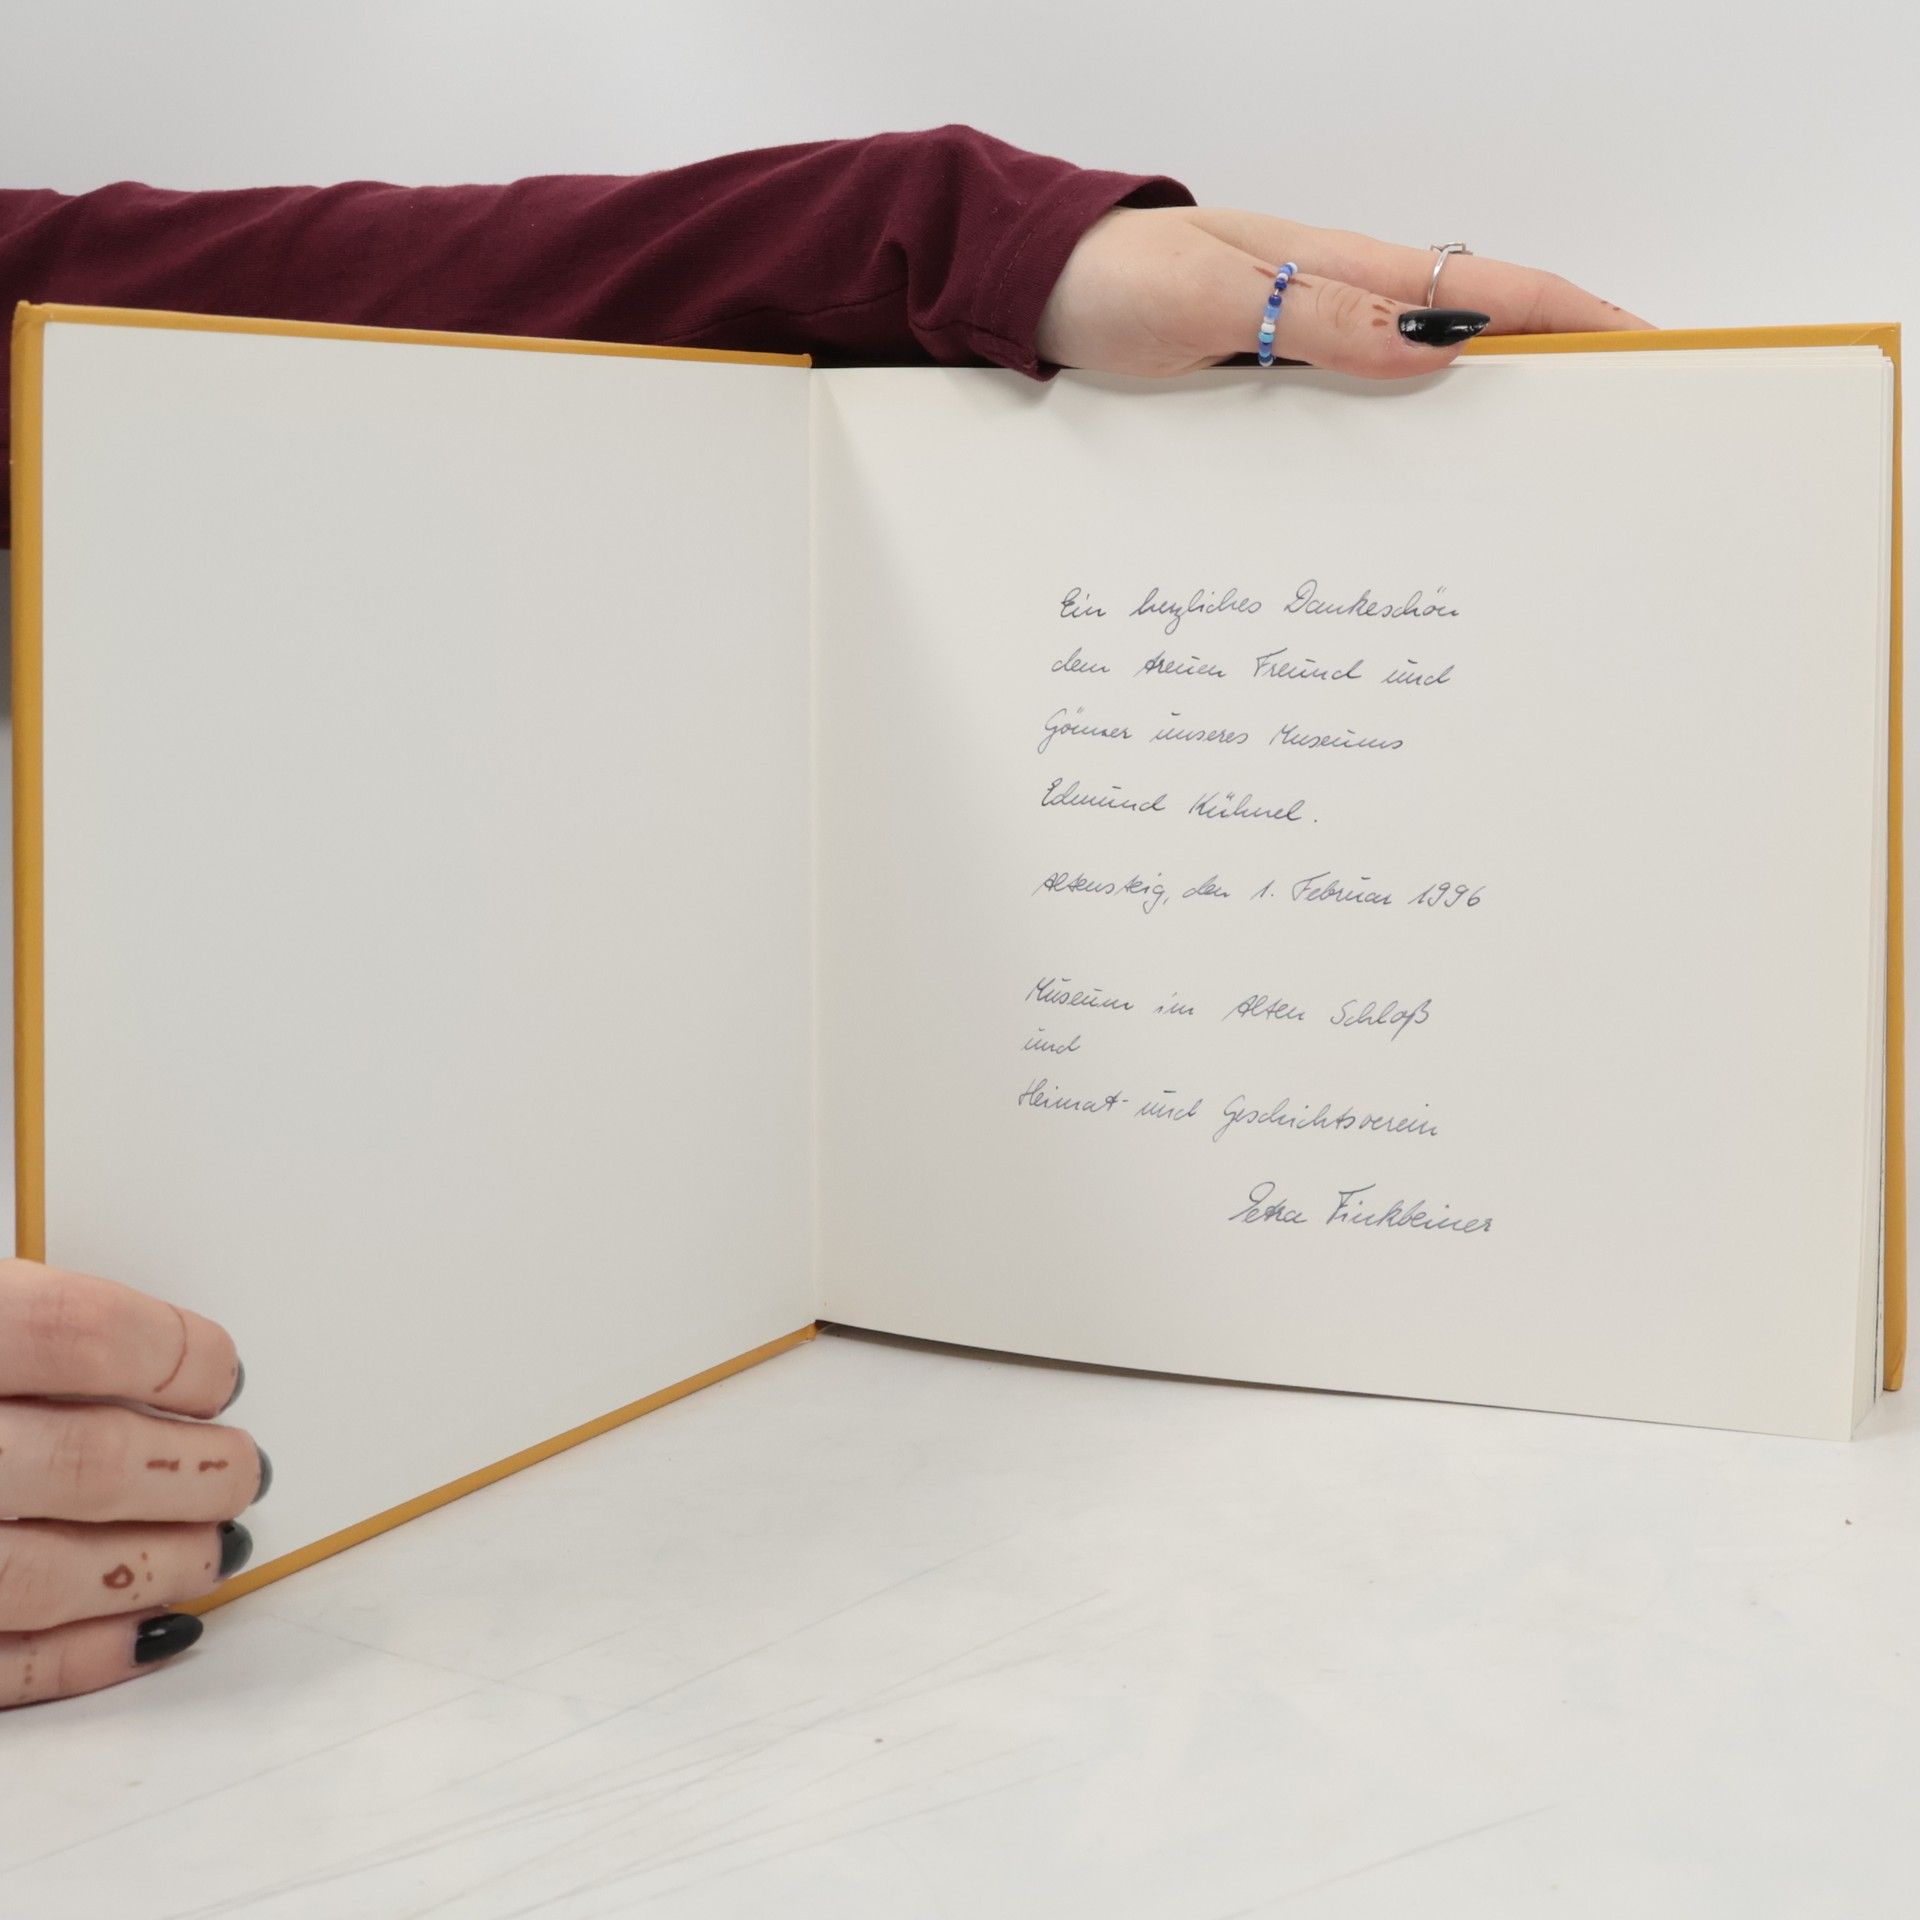 Ein herzliches Dankeschön
dem treuen Freund und
Gönner unseres Museums
Edmund Kühnel.
Altensteig, den 1. Februar 1996
Museum im Alten Schloß
und
Heimat- und Geschichtsverein
Petra Finkbeiner